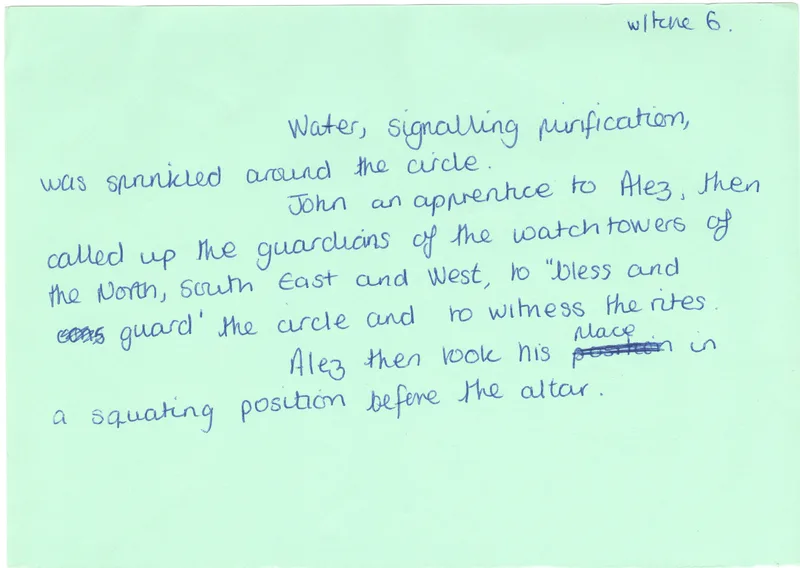 w/tche 6.
Water, signalling purification,
was sprinkled around the circle.
John an apprentice to Alez, then
called up the guardians of the watchtowers of
the North, South East and West, to "bless and
guard' the circle and to witness the rites.
Alez then took his place in
a squating position before the altar.